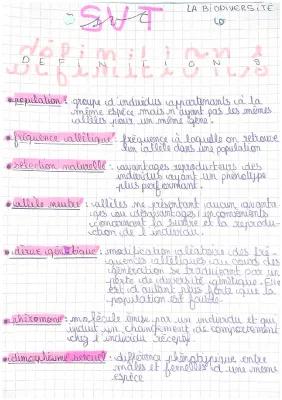 LA BIODIVERSITÉ
SVT
DEFINITIONS
population : groupe d'individus appartenants à la
même espèce mais n'ayant pas les mêmes
allèles pour un même gène.
fréquence allélique : fréquence à laquelle on retrouve
un allèle dans une population
sélection naturelle : avantages reproducteurs des
individus ayant un phénotype
plus performant.
allèle neutre : allèles ne présentant aucun avanta-
ges ou désavantages / inconvénients
concernant la survie et la reproduc-
tion de l'individu.
dérive génétique : modification aléatoire des fré-
quences alléliques au cours des
génération se traduisant par un
perte de diversité génétique. Elle
est d'autant plus forte que la
population est faible.
phéromone : molécule émise par un individu et qui
induit un changement de comportement
chez l'individu récepteur.
dimorphisme sexuel : différence phénotypique entre
mâles et femelles d'une même
espèce